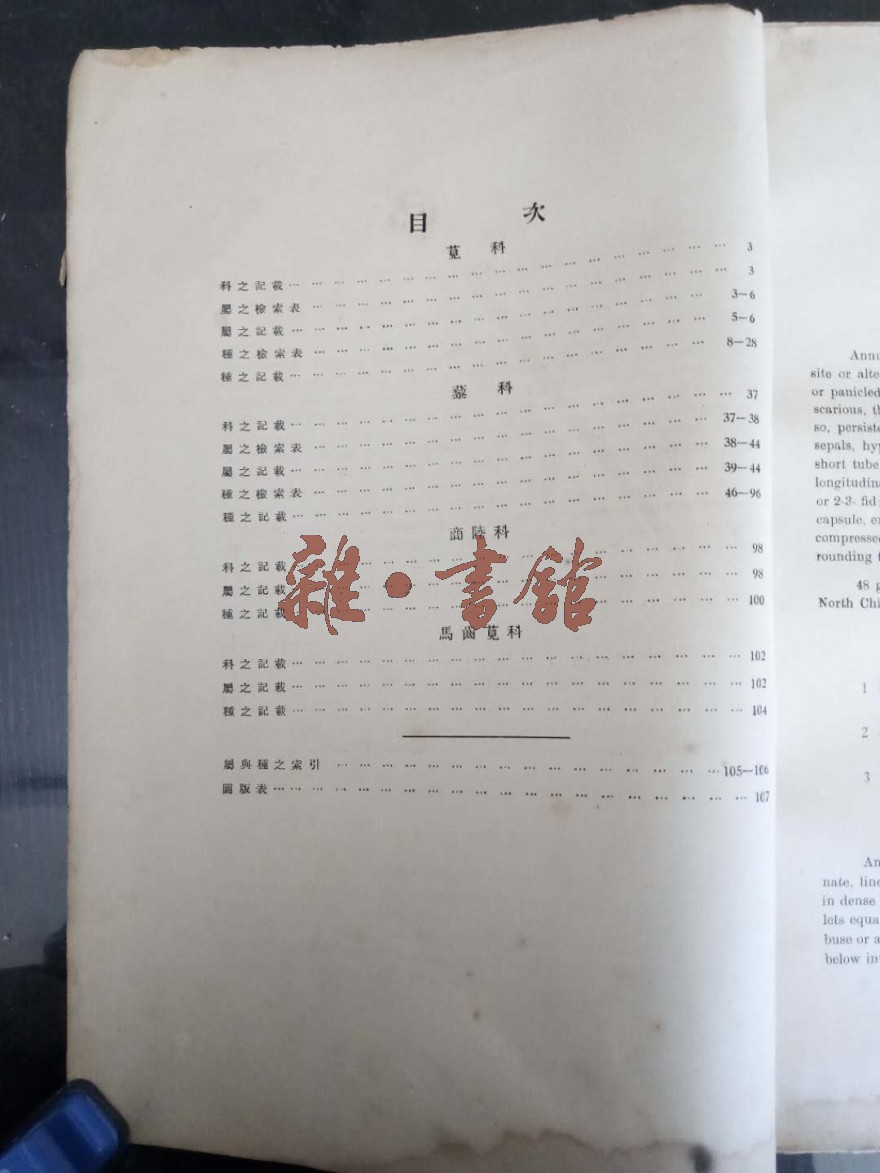 目 次
莧 科
科之記載 … 3
屬之檢索表 … 3
屬之記載 … 3—6
種之檢索表 … 5—6
種之記載 … 8—28
藜 科
科之記載 … 37
屬之檢索表 … 37—38
屬之記載 … 38—44
種之檢索表 … 39—44
種之記載 … 46—96
商陸科
科之記載 … 98
屬之記載 … 98
種之記載 … 100
馬齒莧科
科之記載 … 102
屬之記載 … 102
種之記載 … 104
屬與種之索引 … 105—106
圖版表 … 107
雜·書館
Annu
site or alte
or panicled
scarious, th
so, persiste
sepals, hyp
short tube
longitudina
or 2-3- fid
capsule, e
compressed
rounding t
48 g
North Chi
1
2
3
An
nate, line
in dense
lets equa
buse or a
below in